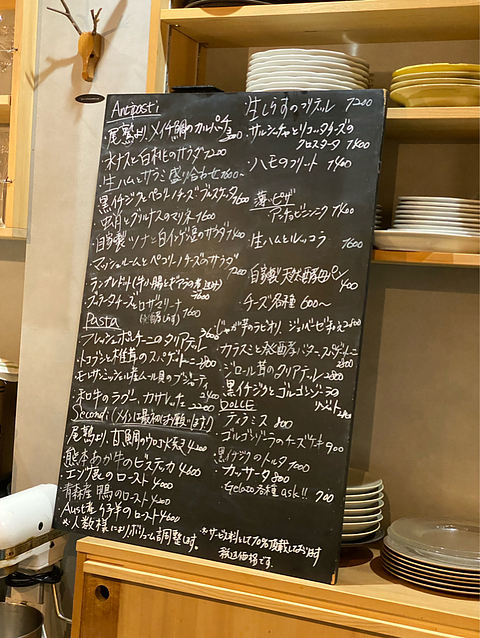 Antipasti
・尾鷲より、メイチ鯛のカルパッチョ
・水ナスと白桃のサラダ 1200
・生ハムとサラミ盛り合わせ 1600〜
・黒イチジクとペコリーノチーズ ブルスケッタ
のマリネ 1600
・自家製ツナと白インゲン豆のサラダ 1400
・マッシュルームとペコリーノチーズのサラダ 1200
1600
・ブッラータチーズとロザマリーナ 1600
Pasta
・フレッシュポルチーニのタリアテッレ 3600
・トコブシと椎茸のスパゲットーニ 2800
・モンサンミッシェル産ムール貝の
・和牛のラグー、カサレッチェ 2200
Secondi (メインは最初にお願いします!)
・尾鷲より、甘鯛のウロコ焼き 4200
・熊本あか牛のビステッカ 4600
・エゾ鹿のロースト 4000
・青森産 鴨のロースト 4200
・Aust産 仔羊のロースト 4600
お人数様によりボリューム調整します。
・生しらすのフリテッレ 1200
・サルシッチャとリコッタチーズの
クロスタータ 1400
・ハモのフリット 1840
薄ピザ
・アンチョビ 1400
・生ハムとルッコラ 1600
・自家製天然酵母パン 400
・チーズ各種 600〜
・じゃが芋のラビオリ、ジェノベーゼ 2800
・カラスミと発酵バター、スパゲットーニ 2800
・ジロール茸のタリアテッレ 2800
・黒イチジクとゴルゴンゾーラの
DOLCE
・ティラミス 800
・ゴルゴンゾーラのチーズケーキ 900
・黒イチジクのトルタ 1000
・カッサータ 800
・Gelato各種 ask!! 700
※サービス料として10%頂戴しております
税込価格です。